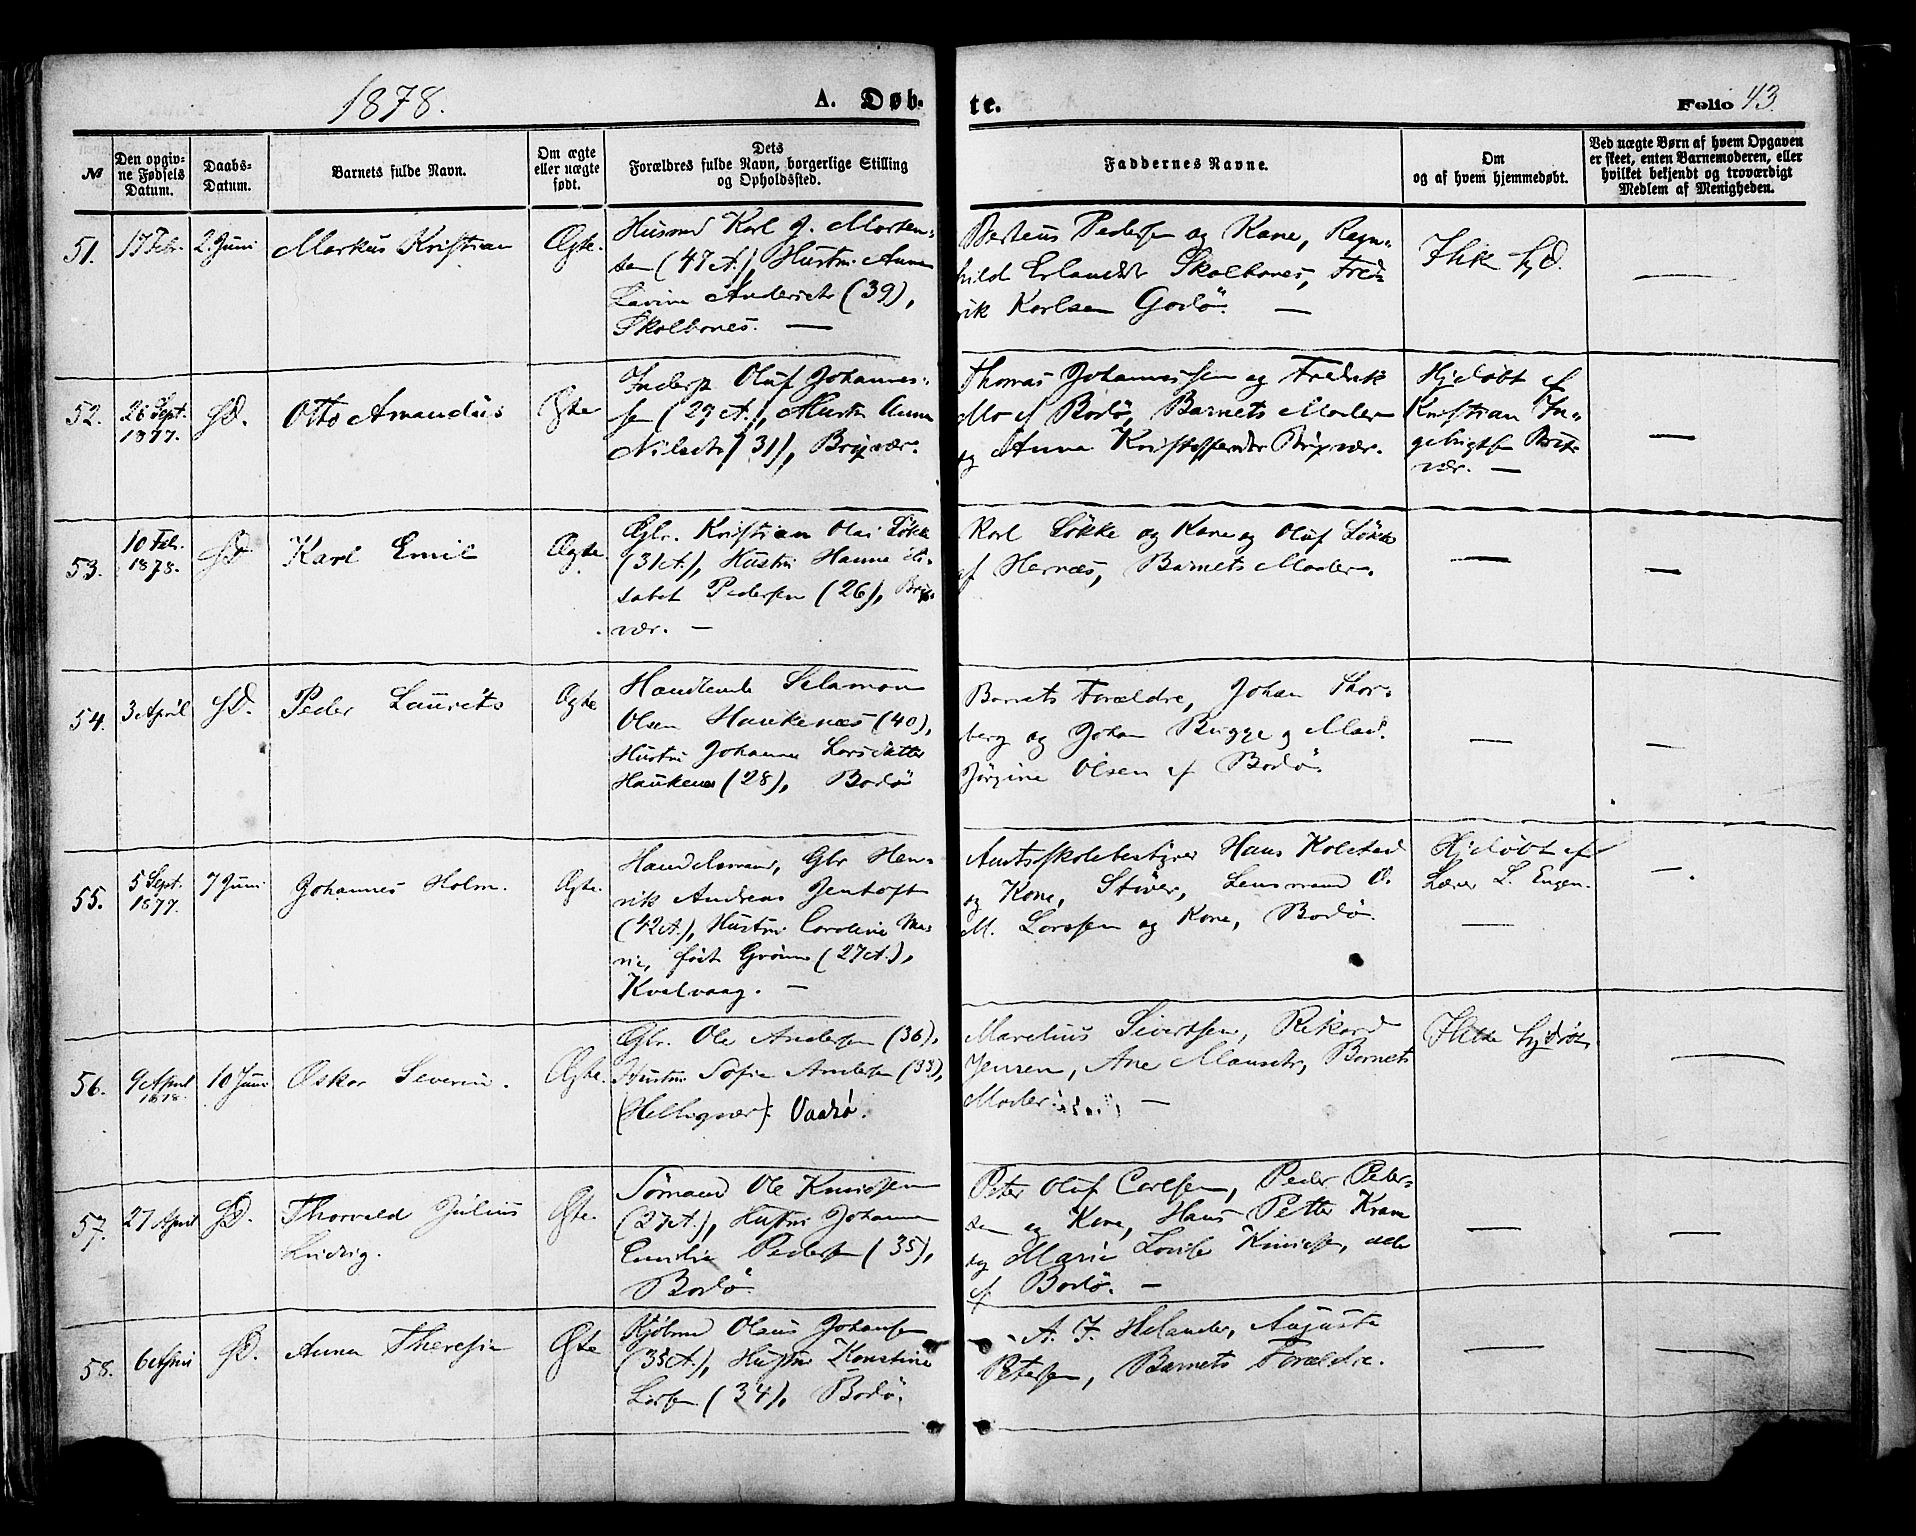 1878.
A. Døb-
te.
Folio 43.
№
Den opgiv-
ne Fødsels
Datum.
Daabs-
Datum.
Barnets fulde Navn.
Om ægte
eller uægte
født.
Dets
Forældres fulde Navn, borgerlige Stilling
og Opholdssted.
Faddernes Navne.
Om
og af hvem hjemmedøbt.
Ved uægte Børn af hvem Opgaven
er skeet, enten Barnemoderen, eller
hvilket bekjendt og troværdigt
Medlem af Menigheden.
51.
17 Febr.
2 Juni
Markus Kristian
Ægte.
Husmd Karl J. Morten-
sen (47 A.), Hustru Anna
Lavina Andersdtr (39),
Skolbones. —
Berteus Pedersen og Kone, Ragn-
hild Erlandsdt Skolbones, Fred-
rik Karlsen Godø. —
Ikke hjd.
—
52.
26 Sept.
1877.
S.D.
Otto Amandus
Ægte
Inderst Oluf Johannes-
sen (29 A.), Hustru Anna
Nilsdtr (31), Brixvær.
Thomas Johannessen og Fredrik
Mo af Bodø, Barnets Moder
og Anna Kristoffersdtr Brixvær.
Hjdøbt af
Kristian In-
gebrigtsen Brix-
vær. —
—
53.
10 Febr.
1878.
S.D.
Karl Emil
Ægte.
Gbr. Kristian Olai Løkke
(31 A.), Hustru Hanna Eli-
sabet Pedersen (26), Brix-
vær. —
Karl Løkke og Kone og Oluf Løkke
af Hernæs, Barnets Moder.
—
—
54.
3 April
S.D.
Peder Laurits
Ægte
Handlende Salamon
Olsen Haukenæs (40),
Hustru Johanna Larsdatter
Haukenæs (28), Bodø
Barnets Forældre, Johan Thor-
berg og Johan Brügge og Mad.
Jørgine Olsen af Bodø.
—
—
55.
5 Sept.
1877.
7 Juni
Johannes Holm.
Ægte.
Handelsmand, Gbr Hen-
rik Andreas Jentoft
(42 A.), Hustru Caroline Ma-
rie, født Grønn (27 A.),
Kvalvaag. —
Amtsskolebestyrer Hans Kolstad
og Kone, Støver, Lensmand O.
M. Larssen og Kone, Bodø.
Hjdøbt af
Lærer L. Engen.
—
—
56.
9 April
1878.
10 Juni
Oskar Severin.
Ægte.
Gbr. Ole Andersen (36),
Hustru Sofie Andersen (33),
(Helligvær). Vaagø.
Marelius Sivertsen, Rikard
Jensen, Ane Mansdtr, Barnets
Moder. —
Ikke hjdøbt
—
57.
27 April
S.D.
Thorvald Julius
Ludvig.
Ægte.
Sømand Ole Knudsen
(27 A.), Hustru Johanna
Emilie Pedersen (35),
Bodø
Peter Oluf Carlsen, Peder Peder-
sen og Kone, Hans Petter Krane
og Marie Lovise Knudsen, alle
af Bodø. —
—
—
58.
6 April
S.D.
Anna Theresia
Ægte
Kjøbmd Olaus Johansen
(35 A.), Hustru Konstine
Larsen (34), Bodø.
A. F. Helander, Augusta
Petersen, Barnets Forældre.
—
—